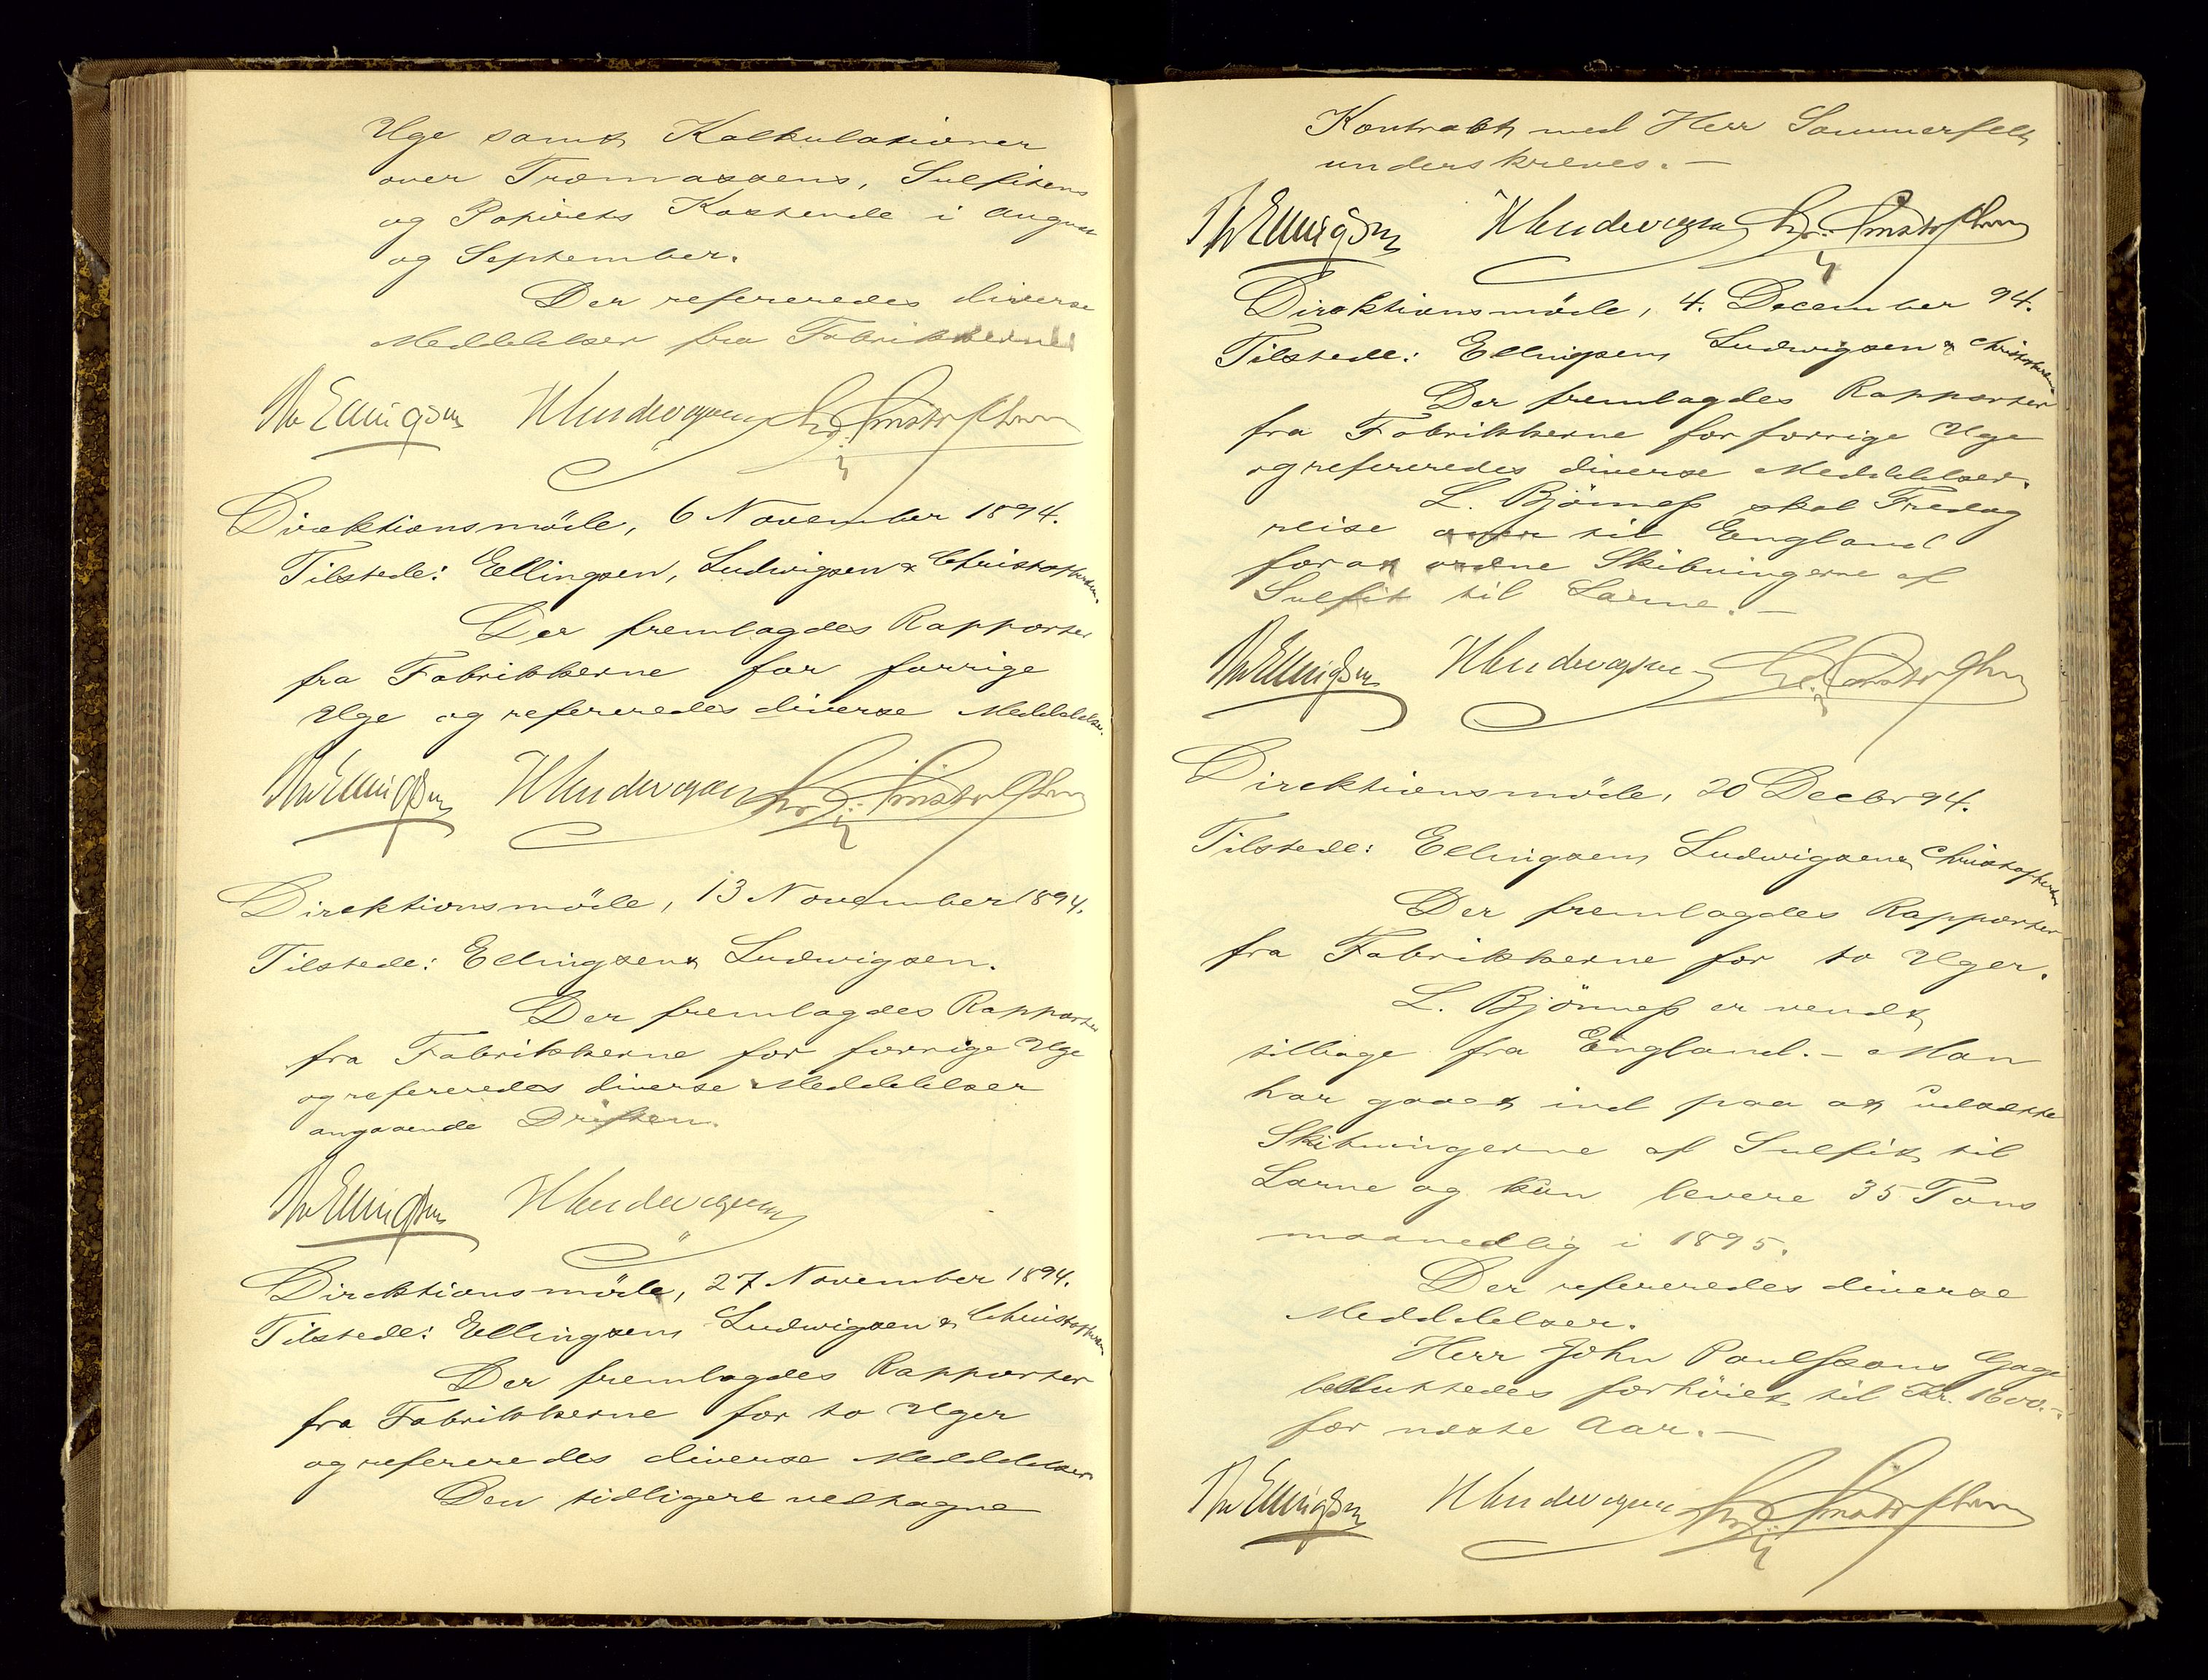 Uge samt Kalkulationer
over Træmassens, Sulfitens
og Papirets Kostende i August
og September.
Der refereredes diverse
Meddelelser fra Fabrikkerne
Th Ellingsen H Ludwigsen Chr. Christophersen
Direktionsmöde, 6 November 1894.
Tilstede: Ellingsen, Ludwigsen & Christophersen.
Der fremlagdes Rapporter
fra Fabrikkerne for forrige
Uge og refereredes diverse Meddelelser.
Th Ellingsen H Ludwigsen Chr. Christophersen
Direktionsmöde, 13 November 1894.
Tilstede: Ellingsen & Ludwigsen.
Der fremlagdes Rapporter
fra Fabrikkerne for forrige Uge
og refereredes diverse Meddelelser
angaaende Driften.
Th Ellingsen H Ludwigsen
Direktionsmöde, 27 November 1894.
Tilstede: Ellingsen, Ludwigsen & Christophersen
Der fremlagdes Rapporter
fra Fabrikkerne for to Uger
og refereredes diverse Meddelelser
Den tidligere vedtagne
Kontrakt med Herr Sommerfelt
underskreves. —
Th Ellingsen H Ludwigsen Chr. Christophersen
Direktionsmöde, 4. December 94.
Tilstede: Ellingsen, Ludwigsen & Christophersen
Der fremlagdes Rapporter
fra Fabrikkerne for forrige Uge
og refereredes diverse Meddelelser.
L. Björneß skal Fredag
reise over til England
for at ordne Skibningerne af
Sulfit til Larne. —
Th Ellingsen H Ludwigsen Chr. Christophersen
Direktionsmöde, 20 Decbr 94.
Tilstede: Ellingsen, Ludwigsen & Christophersen
Der fremlagdes Rapporter
fra Fabrikkerne for to Uger.
L. Björneß er vendt
tilbage fra England. — Man
har gaaet ind paa at udsætte
Skibningerne af Sulfit til
Larne og kun levere 35 Tons
maanedlig i 1895.
Der refereredes diverse
Meddelelser.
Herr John Paulssons Gage
besluttedes forhöiet til Kr. 1600.-
for næste Aar. —
Th Ellingsen H Ludwigsen Chr. Christophersen